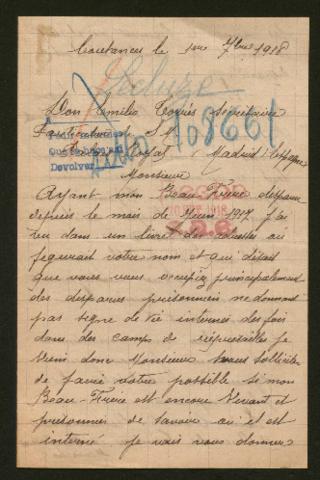 Coutances le 1er 7bre 1918
Lecluze
Don Emilio Torrés Secretaire
Particulier de S M
108661
Devolver
Royal Madrid Espagne
Monsieur
Ayant mon Beau-Frère disparu
depuis le mois de Juin 1917 j'ai
lu dans un livre des
figurait votre nom et qui disait
que vous vous occupiez principalement
des disparus prisonniers ne donnant
pas signe de vie internés des fois
dans des camps de représailles je
viens donc Monsieur vous solliciter
de faire votre possible si mon
Beau-Frère est encore vivant et
prisonnier de savoir ou il est
interné je vais vous donner